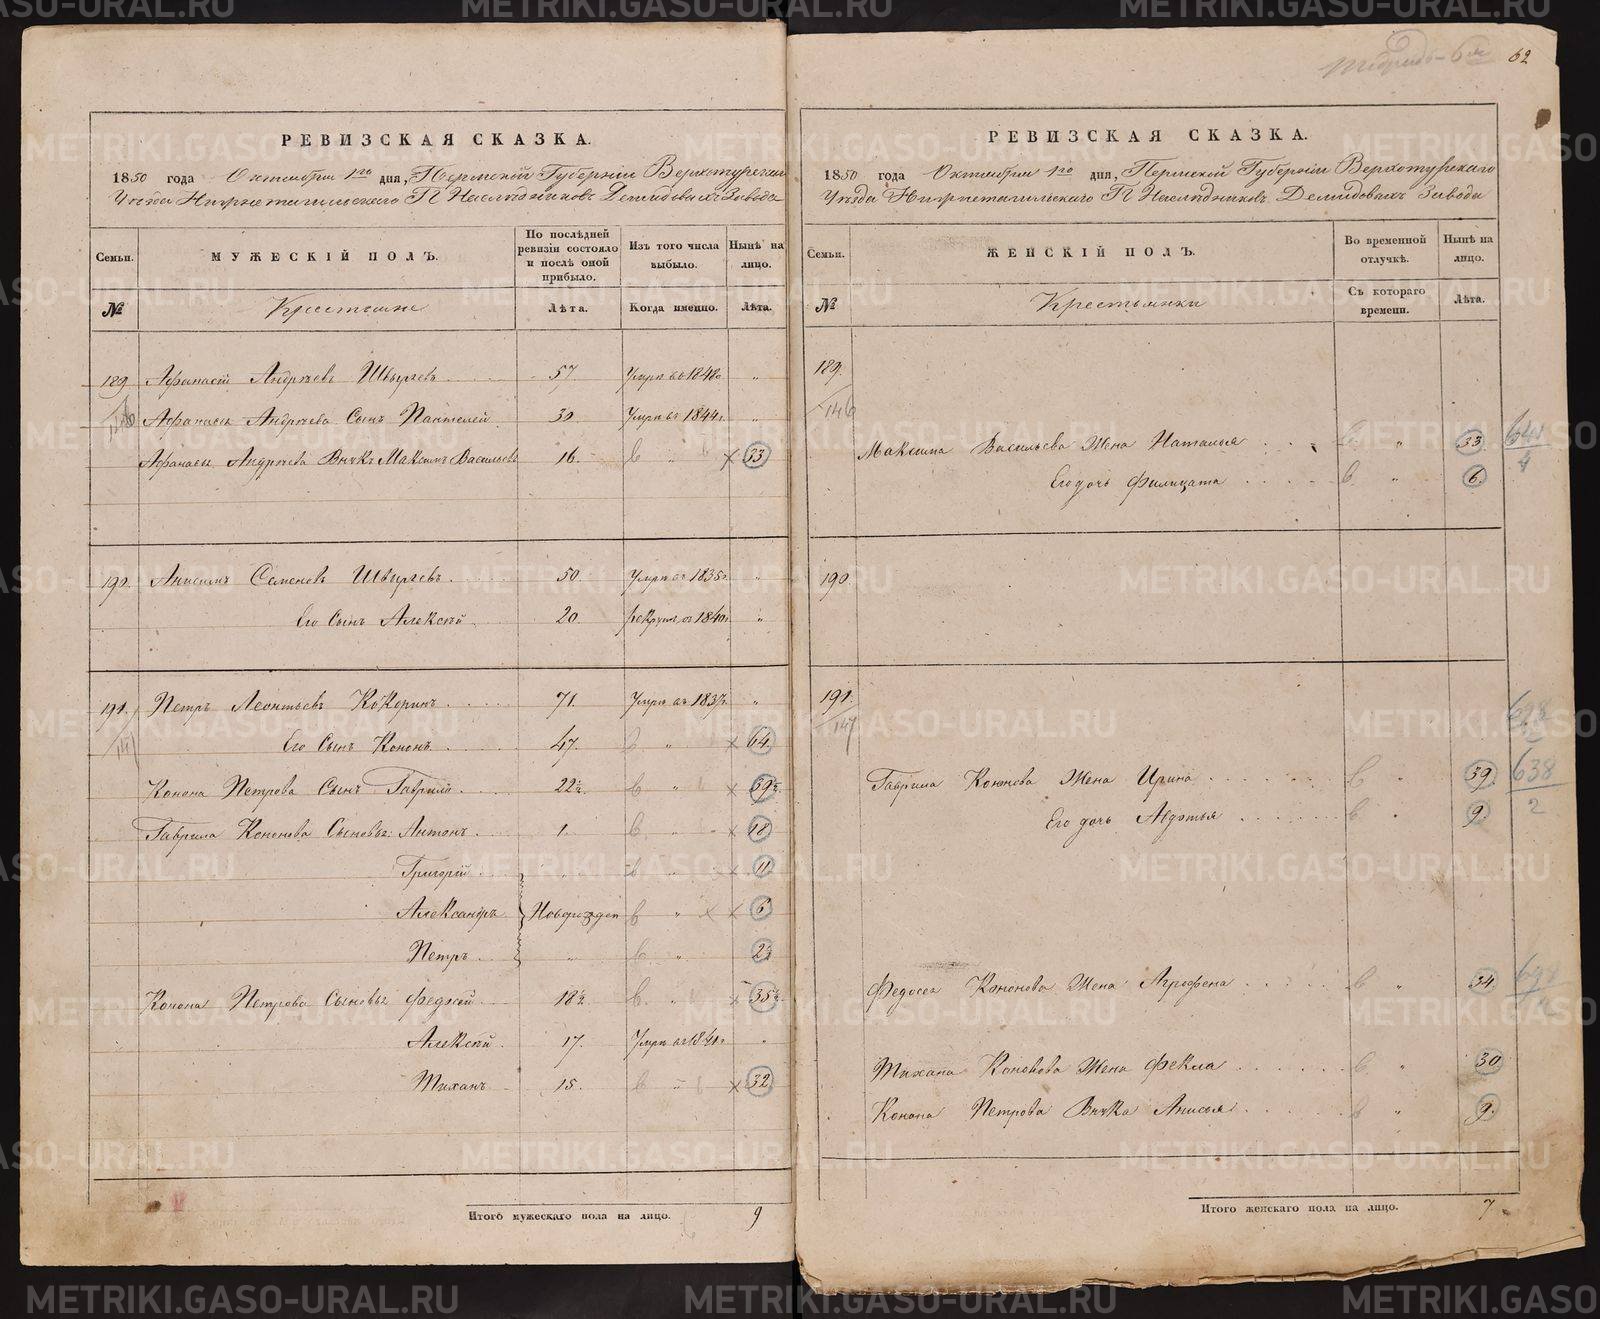 Тетрадь 6я
62
РЕВИЗСКАЯ СКАЗКА.
1850 года Октября 1го дня, Пермской Губернiи Верхотурскаго
Уѣзда Нижнетагильскаго Г. Наслѣдниковъ Демидовыхъ Завода
Семьи.
МУЖЕСКIЙ ПОЛЪ.
По послѣдней ревизiи состояло и послѣ оной прибыло.
Изъ того числа выбыло.
Нынѣ на лицо.
№
Крестьяне
Лѣта.
Когда именно.
Лѣта.
189 Афанасiй Андрѣевъ 57 Умръ въ 1848г. „
146
Афанасья Андрѣева Сынъ Пантелей 30 Умръ въ 1844г. „
Афанасья Андрѣева Внукъ Максимъ Васильевъ 16 „ 33
190. Анисимъ Семеновъ 50. Умръ въ 1835г. „
Его Сынъ Алексѣй 20 рекрутъ въ 1840г. „
191. Петръ Леонтьевъ Кокоринъ 71. Умръ въ 1837г. „
147
Его Сынъ Кононъ 47. „ 64.
Конона Петрова Сынъ Гаврило 22½. „ 39½.
Гаврила Кононова Сыновья: Антонъ 1. „ 18
Григорiй „ „ 11
Александръ Новорожден „ 6
Петръ „ „ 2½
Конона Петрова Сыновья Федосей 18½ „ 35½.
Алексѣй 17. Умръ въ 1841г. „
Тиханъ 15. „ 32
Итого мужескаго пола на лицо. 9
РЕВИЗСКАЯ СКАЗКА.
1850 года Октября 1го дня, Пермской Губернiи Верхотурскаго
Уѣзда Нижнетагильскаго Г. Наслѣдниковъ Демидовыхъ Завода
Семьи.
ЖЕНСКIЙ ПОЛЪ.
Во временной отлучкѣ.
Нынѣ на лицо.
№
Крестьянки
Съ котораго времени.
Лѣта.
189.
146
Максима Васильева Жена Наталья „ 33
641
4
Его дочь Филицата „ 6.
190.
191.
147
Гаврила Кононова Жена Ирина „ 39.
638
2
Его дочь Авдотья „ 9.
Федосея Кононова Жена Агрофена „ 34
Тихана Кононова Жена Фекла „ 30
Конона Петрова Внука Анисья „ 9.
Итого женскаго пола на лицо. 7
METRIKI.GASO-URAL.RU